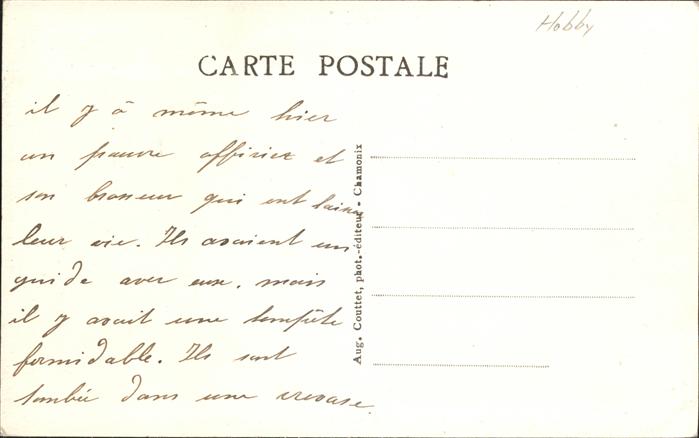 Hobby
CARTE POSTALE
il y à même hier
un pauvre officier et
son brosseur qui ont laissé
leur vie. Ils avaient un
guide avec eux. mais
il y avait une tempête
formidable. Ils sont
tombée dans une crevase.
Aug. Couttet, phot.-éditeur - Chamonix